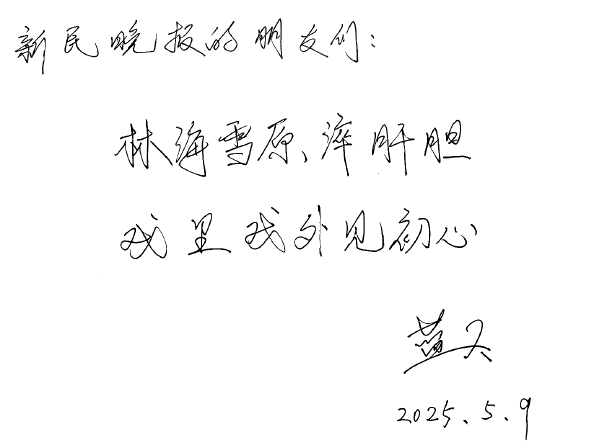 新民晚报的朋友们：
林海雪原、淬肝胆
戏里戏外见初心
蓝天
2025.5.9